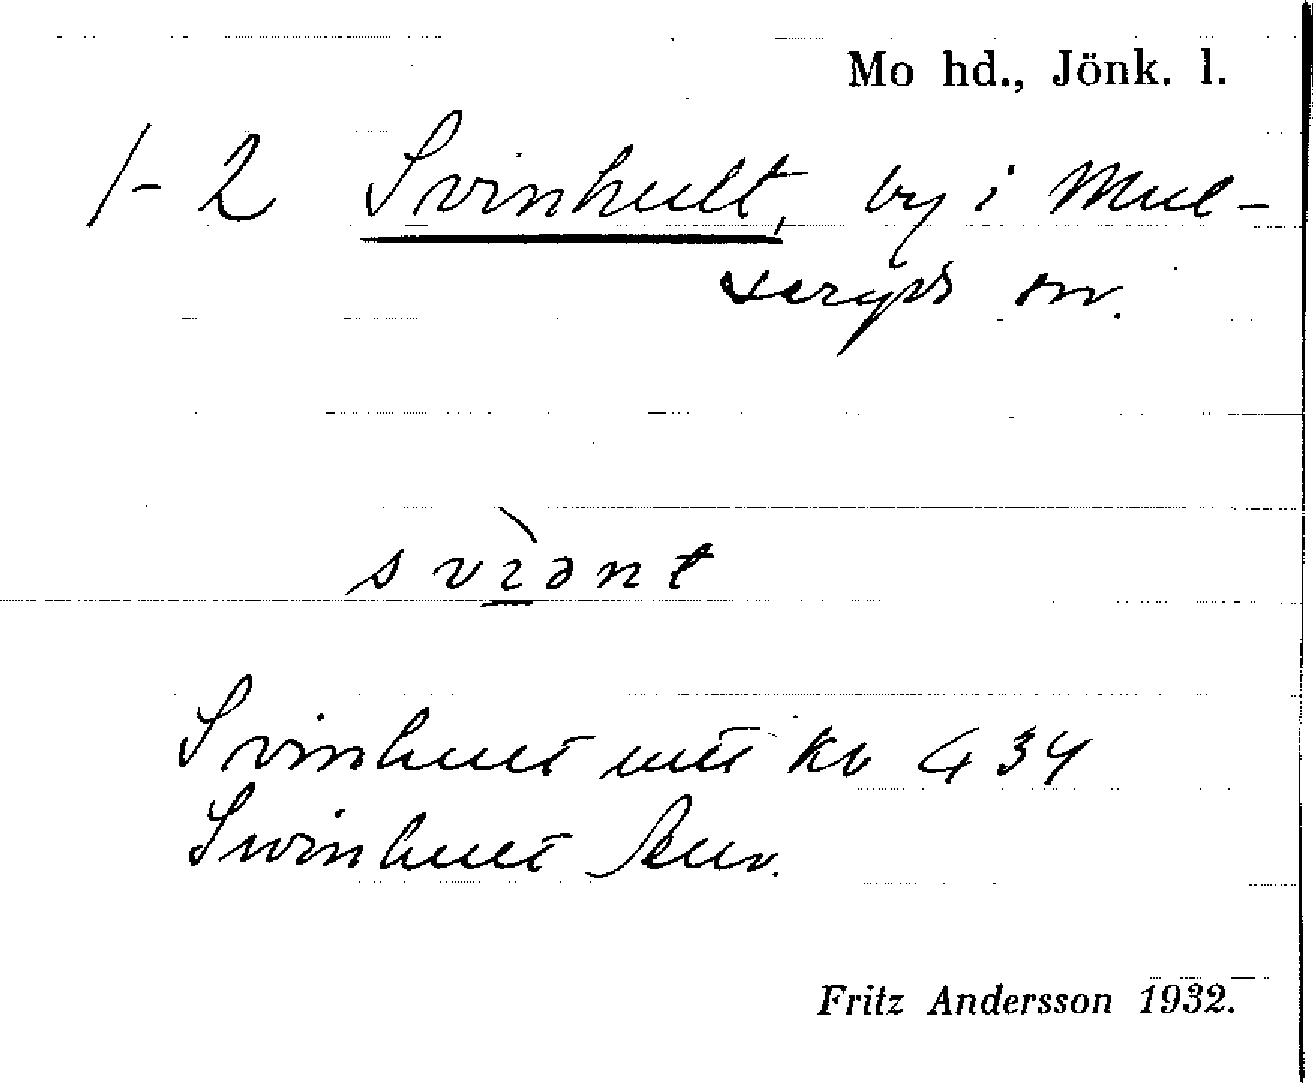 Mo hd., Jönk. l.
1-2 Svinhult, by i Mul-
seryds sn.
svìənt
Svinhult utt kv G 34
Swinhult
Fritz Andersson 1932.